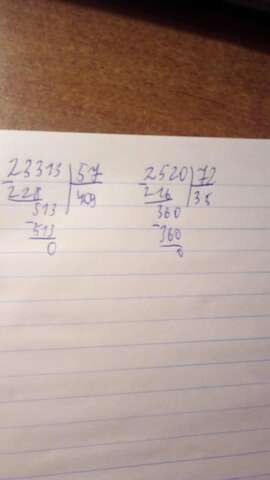 23313 57 2520 72
228 409 216 35
513 360
-513 -360
0 0